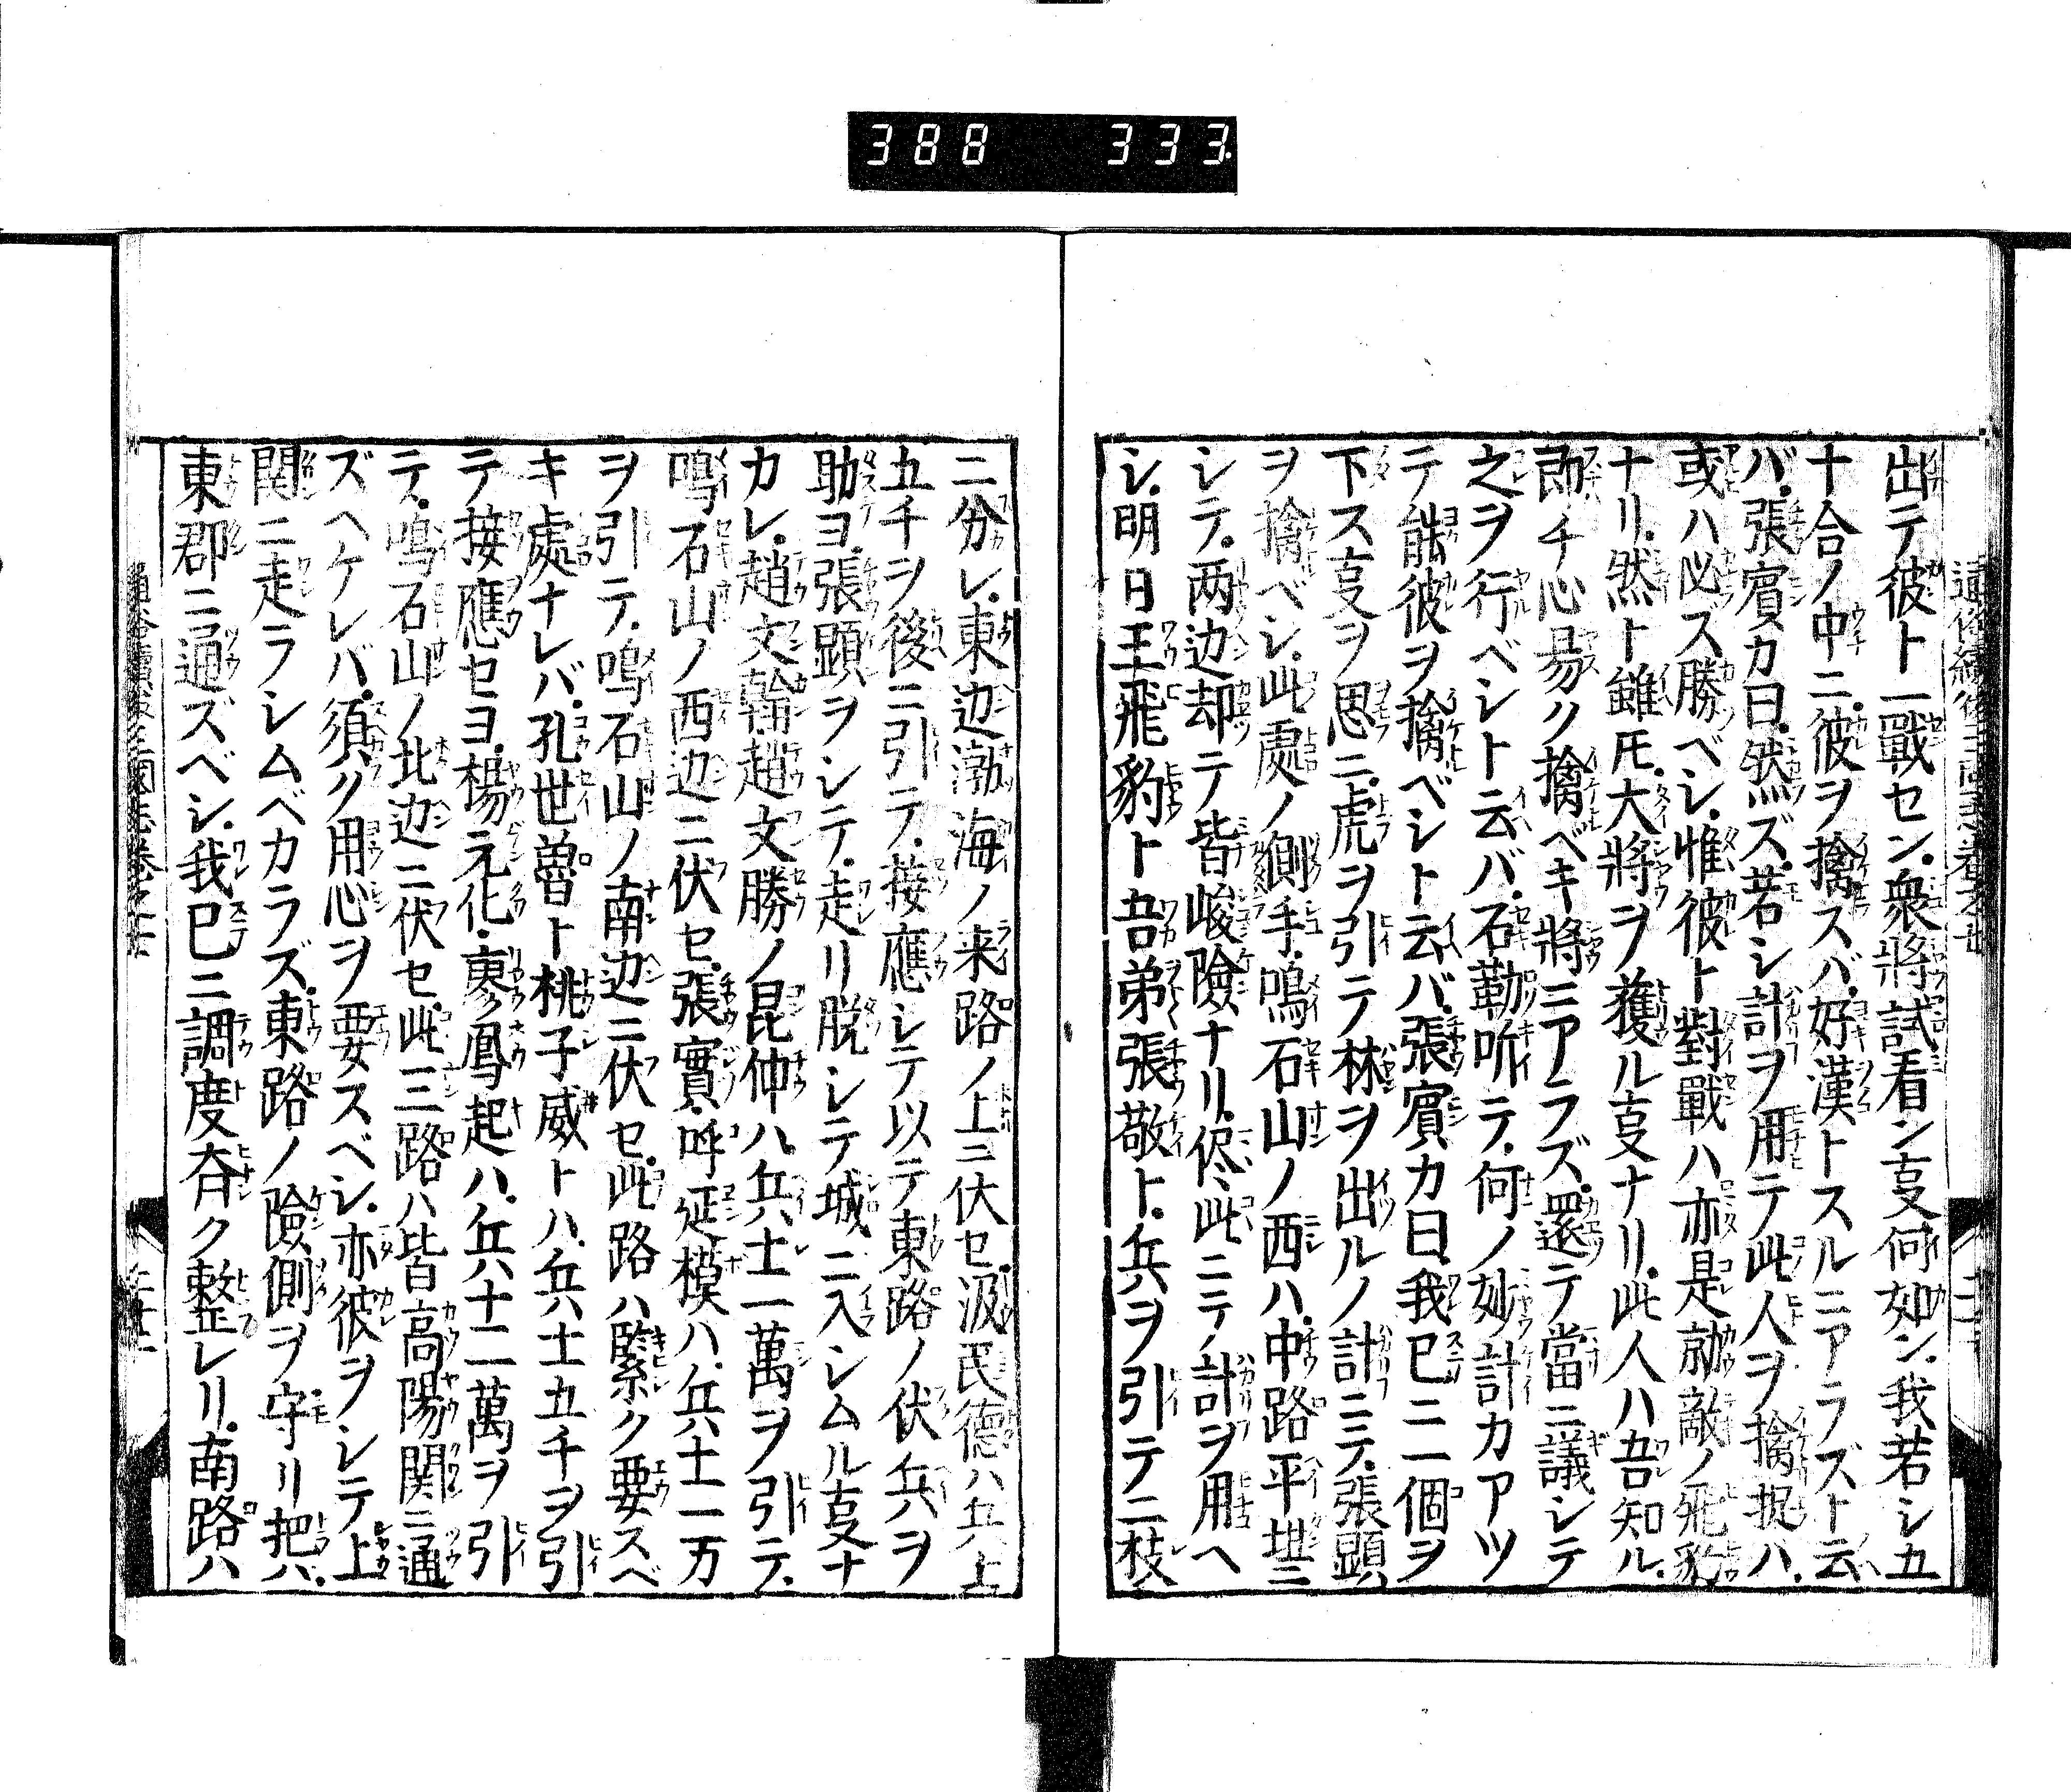 388 333
出テ彼ト一戰セン．衆將試看ン叓何如ン．我若シ五
十合ノ中ニ．彼ヲ擒スバ．好漢トスルニアラズト云
バ．張賓カ曰．然ズ．若シ計ヲ用テ此人ヲ擒捉ハ．
或ハ必ズ勝ベシ．惟彼ト對戰ハ亦是勍敵ノ飛豹
ナリ．然ト雖㐧．大將ヲ獲ル叓ナリ．此人ハ吾知ル．
即チ心易ク擒ベキ將ニアラズ．還テ當ニ議シテ
之ヲ行ベシト云バ．石勒听テ．何ノ妙計カアツ
テ能彼ヲ擒ベシト云バ．張賓カ曰．我已ニ一個ヲ
下ス叓ヲ思ニ．虎ヲ引テ林ヲ出ルノ計ニテ．張顕
ヲ擒ベシ．此處ノ側手．鳴石山ノ西ハ．中路平坦ニ
シテ．両辺却テ皆峻險ナリ．侭此ニテノ計ヲ用ヘ
シ．明日王飛豹ト吾弟張敬ト．兵ヲ引テ二枝
ニ分レ．東辺渤海ノ来路ノ上ニ伏セ．汲民德ハ兵士
五千ヲ後ニ引テ．接應シテ以テ東路ノ伏兵ヲ
助ヨ．張顕ヲシテ．走リ脱シテ城ニ入シムル叓ナ
カレ．趙文翰．趙文勝ノ昆仲ハ．兵士一萬ヲ引テ．
鳴石山ノ西辺ニ伏セ．張實．呼延模ハ．兵士一万
ヲ引テ．鳴石山ノ南辺ニ伏セ．此路ハ緊ク要スベ
キ處ナレバ．孔世魯ト桃子威トハ．兵士五千ヲ引
テ接應セヨ．楊元化．廖鳳起ハ．兵士二萬ヲ引
テ．鳴石山ノ北辺ニ伏セ．此三路ハ皆高陽関ニ通
ズヘケレバ．須ク用心ヲ要スベシ．亦彼ヲシテ上
関ニ走ラシムベカラズ．東路ノ險側ヲ守リ把ハ．
東郡ニ通ズベシ．我已ニ調度斉ク整レリ．南路ハ